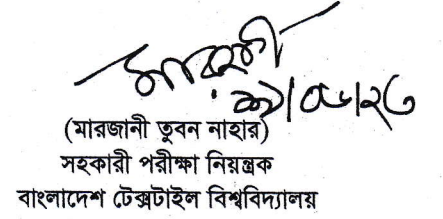 (মারজানী তুবন নাহার)
সহকারী পরীক্ষা নিয়ন্ত্রক
বাংলাদেশ টেক্সটাইল বিশ্ববিদ্যালয়